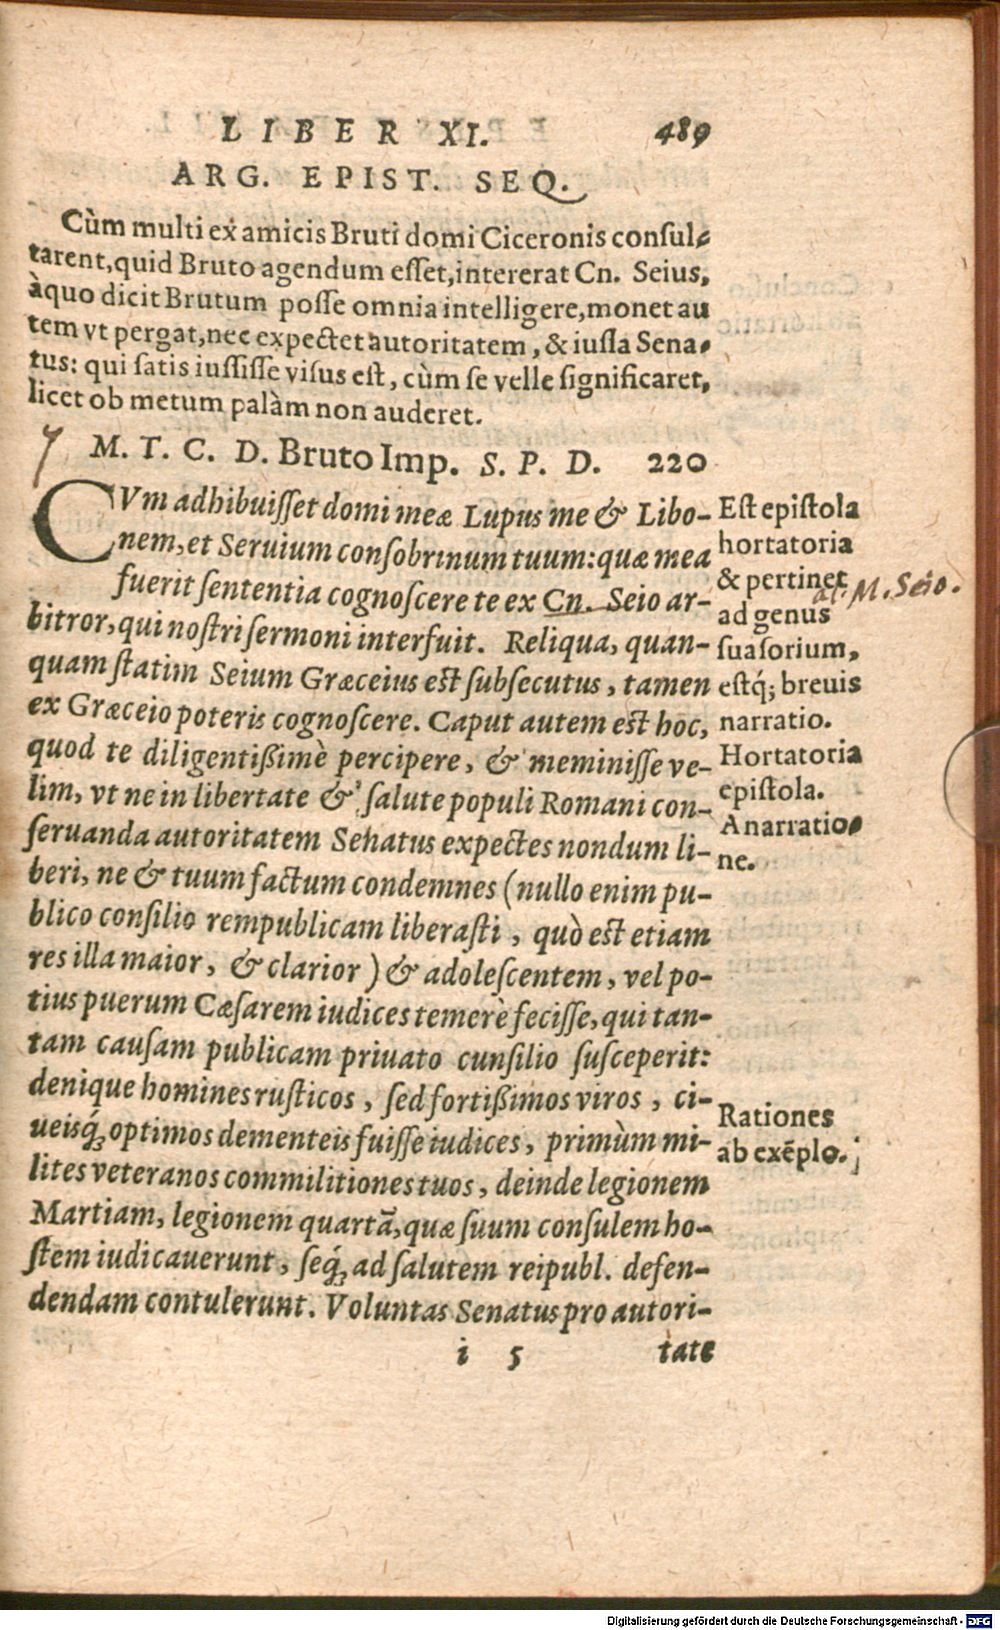 LIBER XI. 489
ARG. EPIST. SEQ.
Cùm multi ex amicis Bruti domi Ciceronis consul-
tarent, quid Bruto agendum esset, intererat Cn. Seius,
à quo dicit Brutum posse omnia intelligere, monet au
tem vt pergat, nec expectet autoritatem, & iussa Sena-
tus: qui satis iussisse visus est, cùm se velle significaret,
licet ob metum palàm non auderet.
7 M. T. C. D. Bruto Imp. S. P. D. 220
CVm adhibuisset domi meæ Lupus me & Libo-
nem, et Seruium consobrinum tuum: quæ mea
fuerit sententia cognoscere te ex Cn. Seio ar-
bitror, qui nostri sermoni interfuit. Reliqua, quan-
quam statim Seium Græceius est subsecutus, tamen
ex Græceio poteris cognoscere. Caput autem est hoc,
quod te diligentißimè percipere, & meminisse ve-
lim, vt ne in libertate & salute populi Romani con-
seruanda autoritatem Senatus expectes nondum li-
beri, ne & tuum factum condemnes (nullo enim pu-
blico consilio rempublicam liberasti, quò est etiam
res illa maior, & clarior) & adolescentem, vel po-
tius puerum Cæsarem iudices temerè fecisse, qui tan-
tam causam publicam priuato cunsilio susceperit:
denique homines rusticos, sed fortißimos viros, ci-
ueisq́; optimos dementeis fuisse iudices, primùm mi-
lites veteranos commilitiones tuos, deinde legionem
Martiam, legionem quartã, quæ suum consulem ho-
stem iudicauerunt, seq́; ad salutem reipubl. defen-
dendam contulerunt. Voluntas Senatus pro autori-
i 5 tate
Est epistola
hortatoria
& pertinet
al. M. Seio.
ad genus
suasorium,
estq́; breuis
narratio.
Hortatoria
epistola.
A narratio-
ne.
Rationes
ab exẽplo.
Digitalisierung gefördert durch die Deutsche Forschungsgemeinschaft - DFG